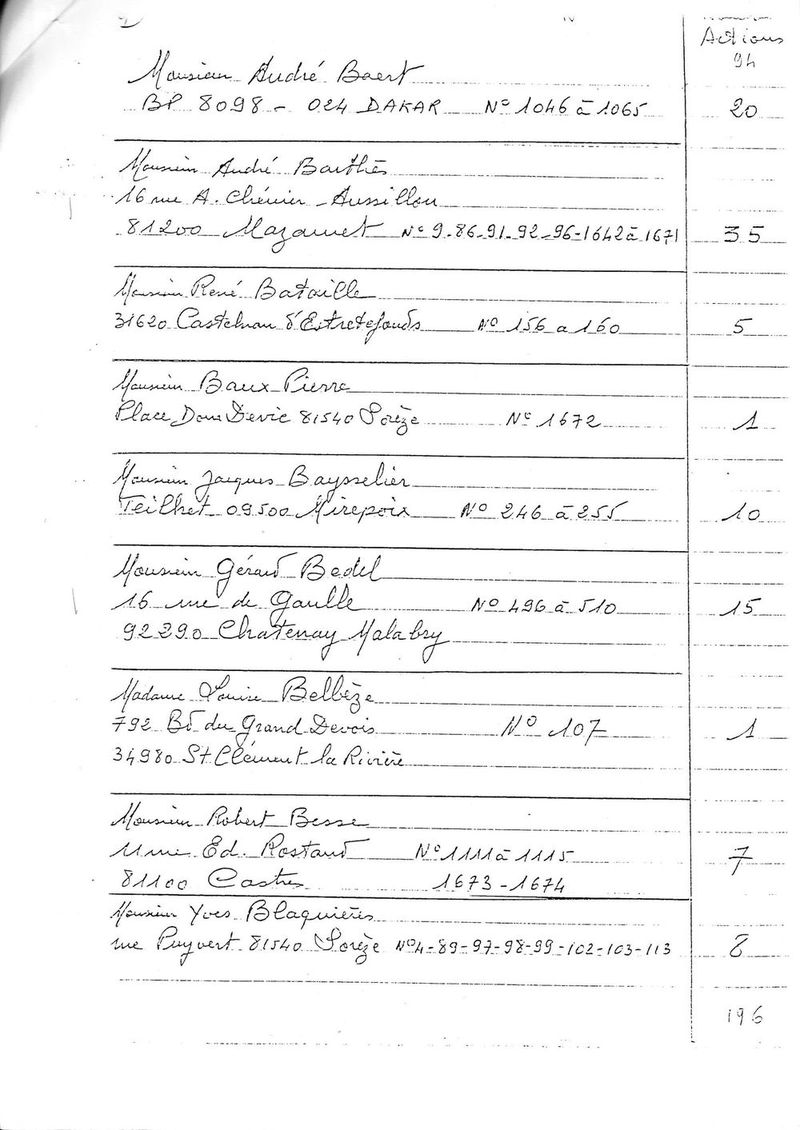 Actions
94
Monsieur André Baert
BP 8098 - 024 DAKAR N° 1046 à 1065 20
Monsieur André Barthès
16 rue A. Chénier - Aussillon
81200 Mazamet N° 9-86-91-92-96-1642 à 1671 35
Monsieur René Bataille
31620 Castelnau d'Estretefonds N° 156 a 160 5
Monsieur Baux Pierre
Place Dom Devic 81540 Sorèze N° 1672 1
Monsieur Jacques Baysselier
Teilhet 09500 Mirepoix N° 246 à 255 10
Monsieur Gérard Bedel
16 rue de Gaulle N° 496 à 510 15
92290 Chatenay Malabry
Madame Louise Bellèze
792 Bd du Grand Devois N° 107 1
34980 St Clément la Rivière
Monsieur Robert Besse
11 rue Ed. Rostand N° 1111 à 1115 7
81100 Castres 1673-1674
Monsieur Yves Blaquières
rue Puyvert 81540 Sorèze N° 4-89-97-98-99-102-103-113 8
196